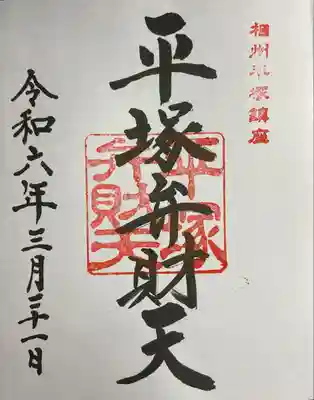 相州平塚鎮座
平塚弁財天
平塚
弁財天
令和六年三月三十一日